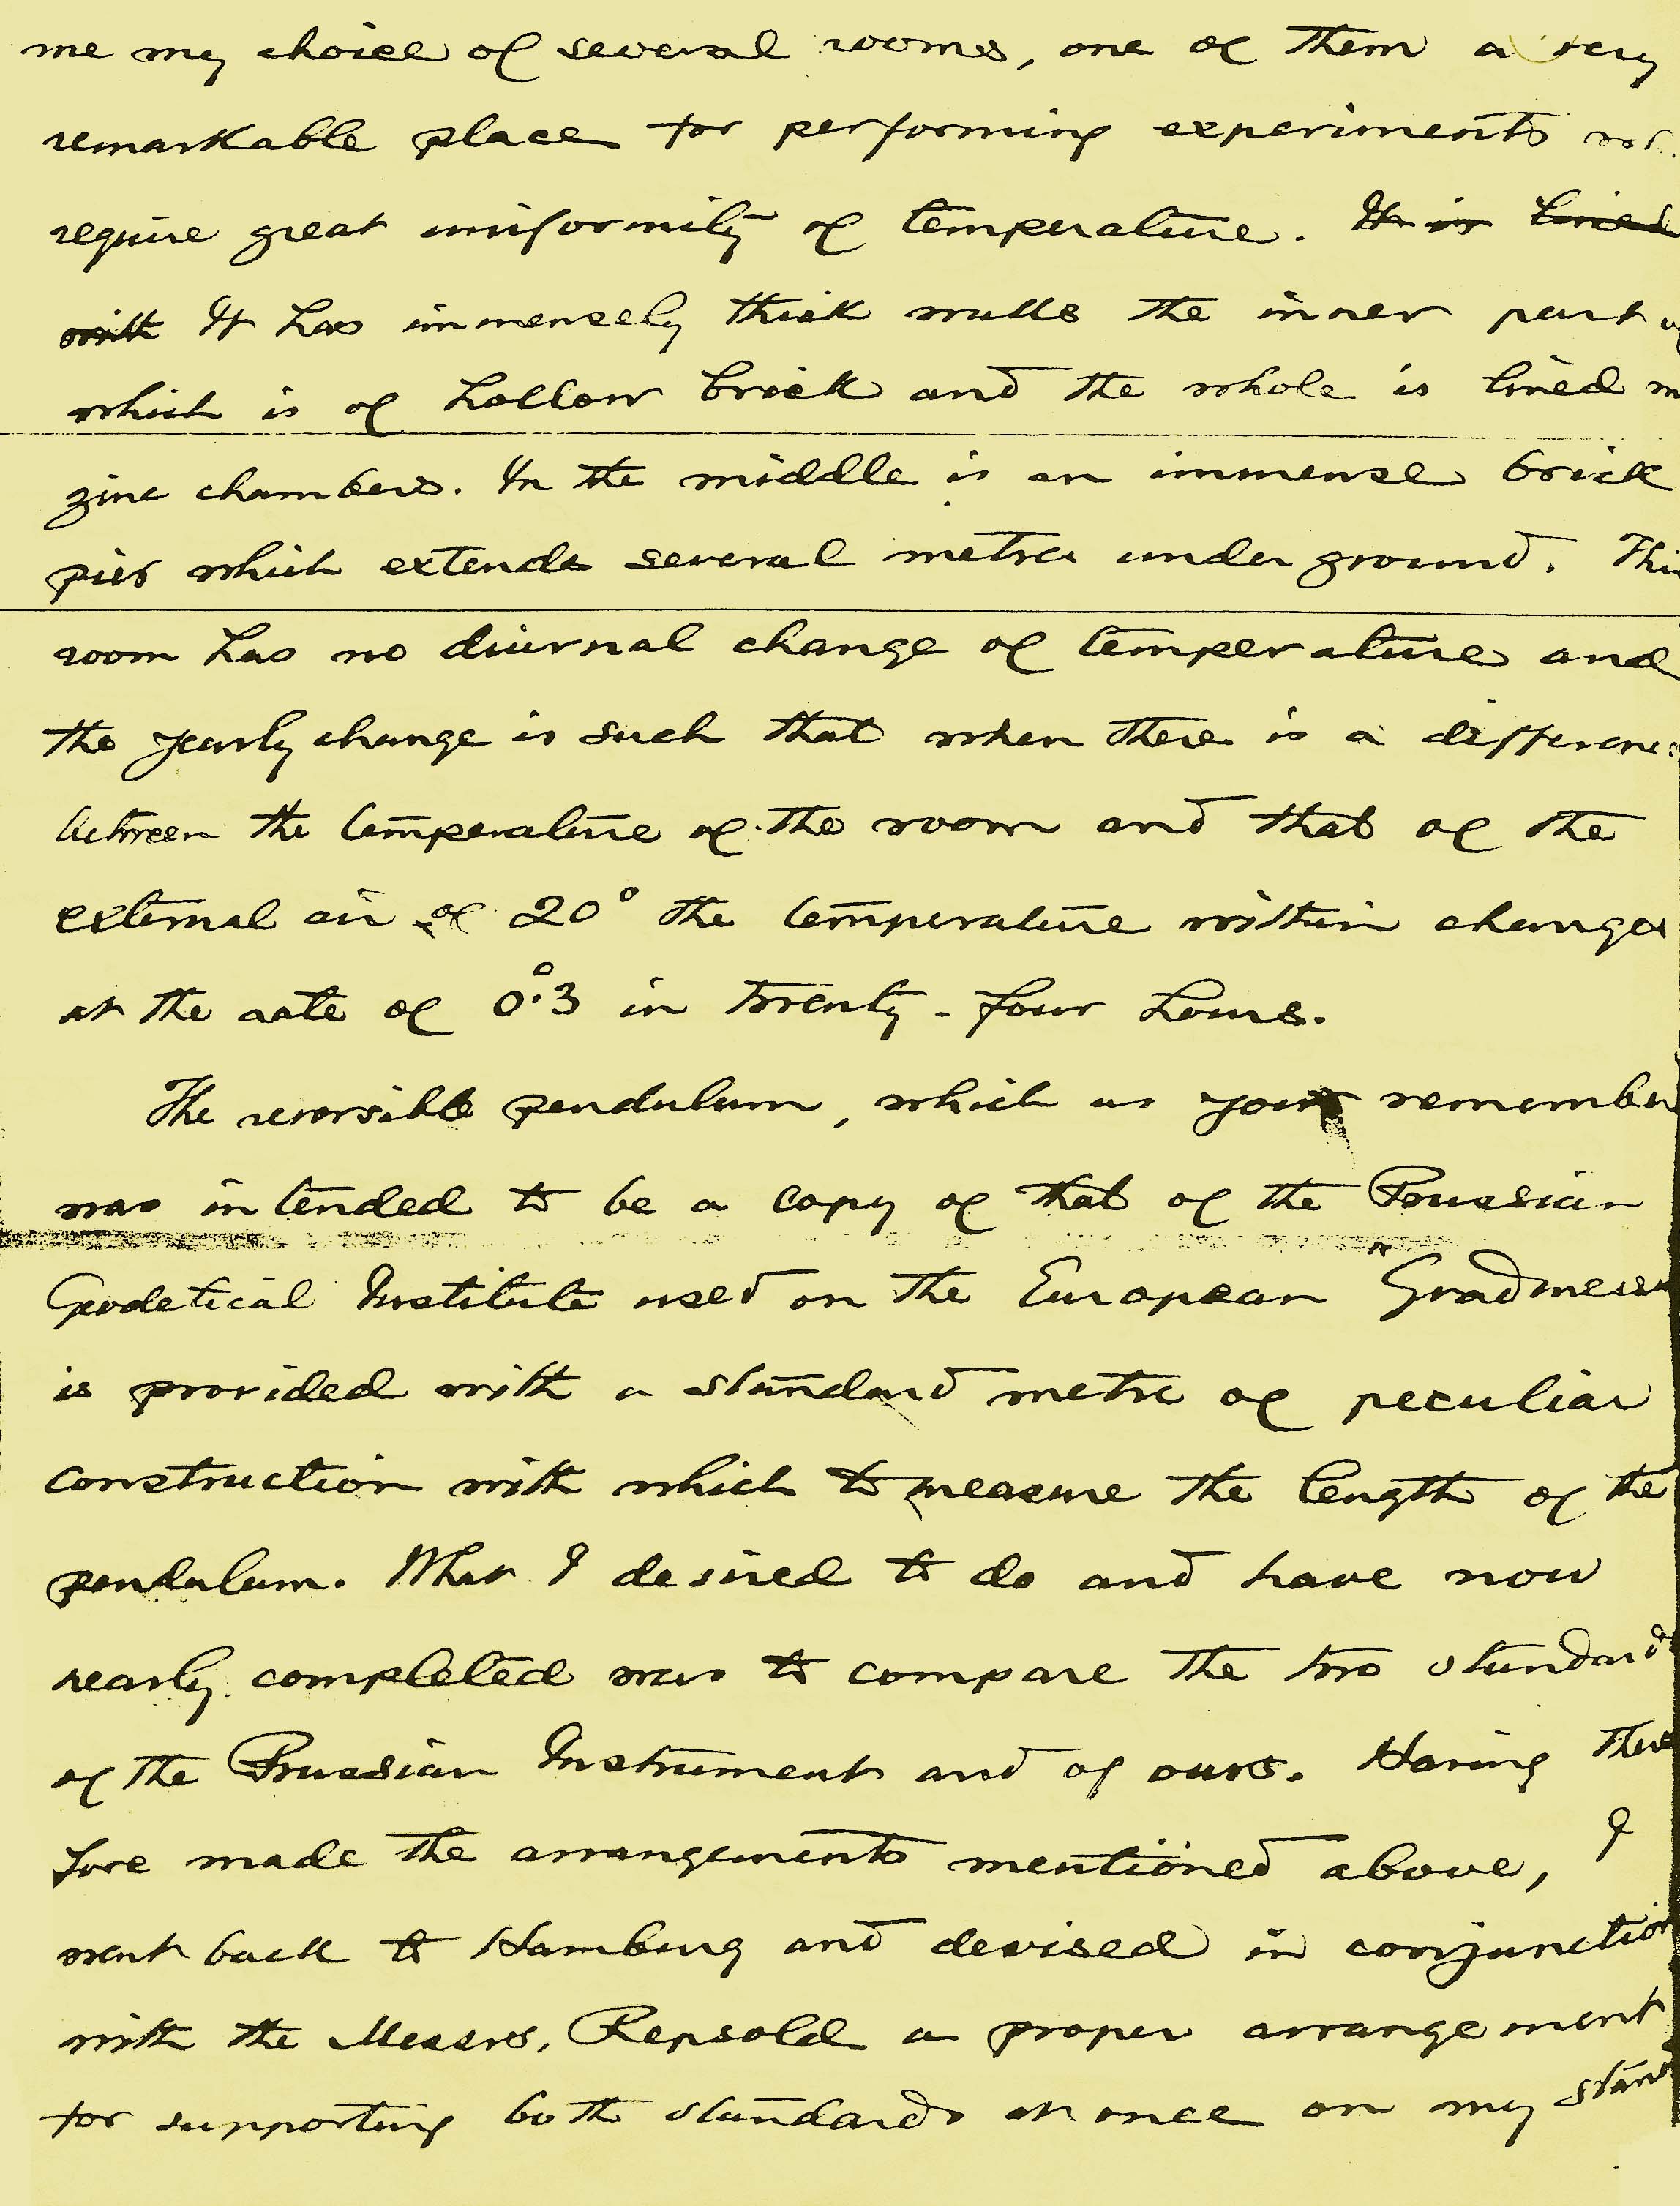 me my choice of several rooms, one of them a very
remarkable place for performing experiments
require great uniformity of temperature. It is lined
with It has immensely thick walls the inner part of
which is of hollow brick and the whole is lined
zinc chambers. In the middle is an immense brick
pier which extends several metres under ground. This
room has no diurnal change of temperature and
the yearly change is such that when there is a difference
between the temperature of the room and that of the
external air of 20° the temperature within changes
at the rate of 0°.3 in twenty-four hours.
The reversible pendulum, which as you remember
was intended to be a copy of that of the Prussian
Geodetical Institute used on the European "Gradmess
is provided with a standard metre of peculiar
construction with which to measure the length of the
pendulum. What I desired to do and have now
nearly completed was to compare the two standards
of the Prussian Instrument and of ours. Having there
fore made the arrangements mentioned above, I
went back to Hamburg and devised in conjunction
with the Messrs. Repsold a proper arrangement
for supporting both standards at once on my stand